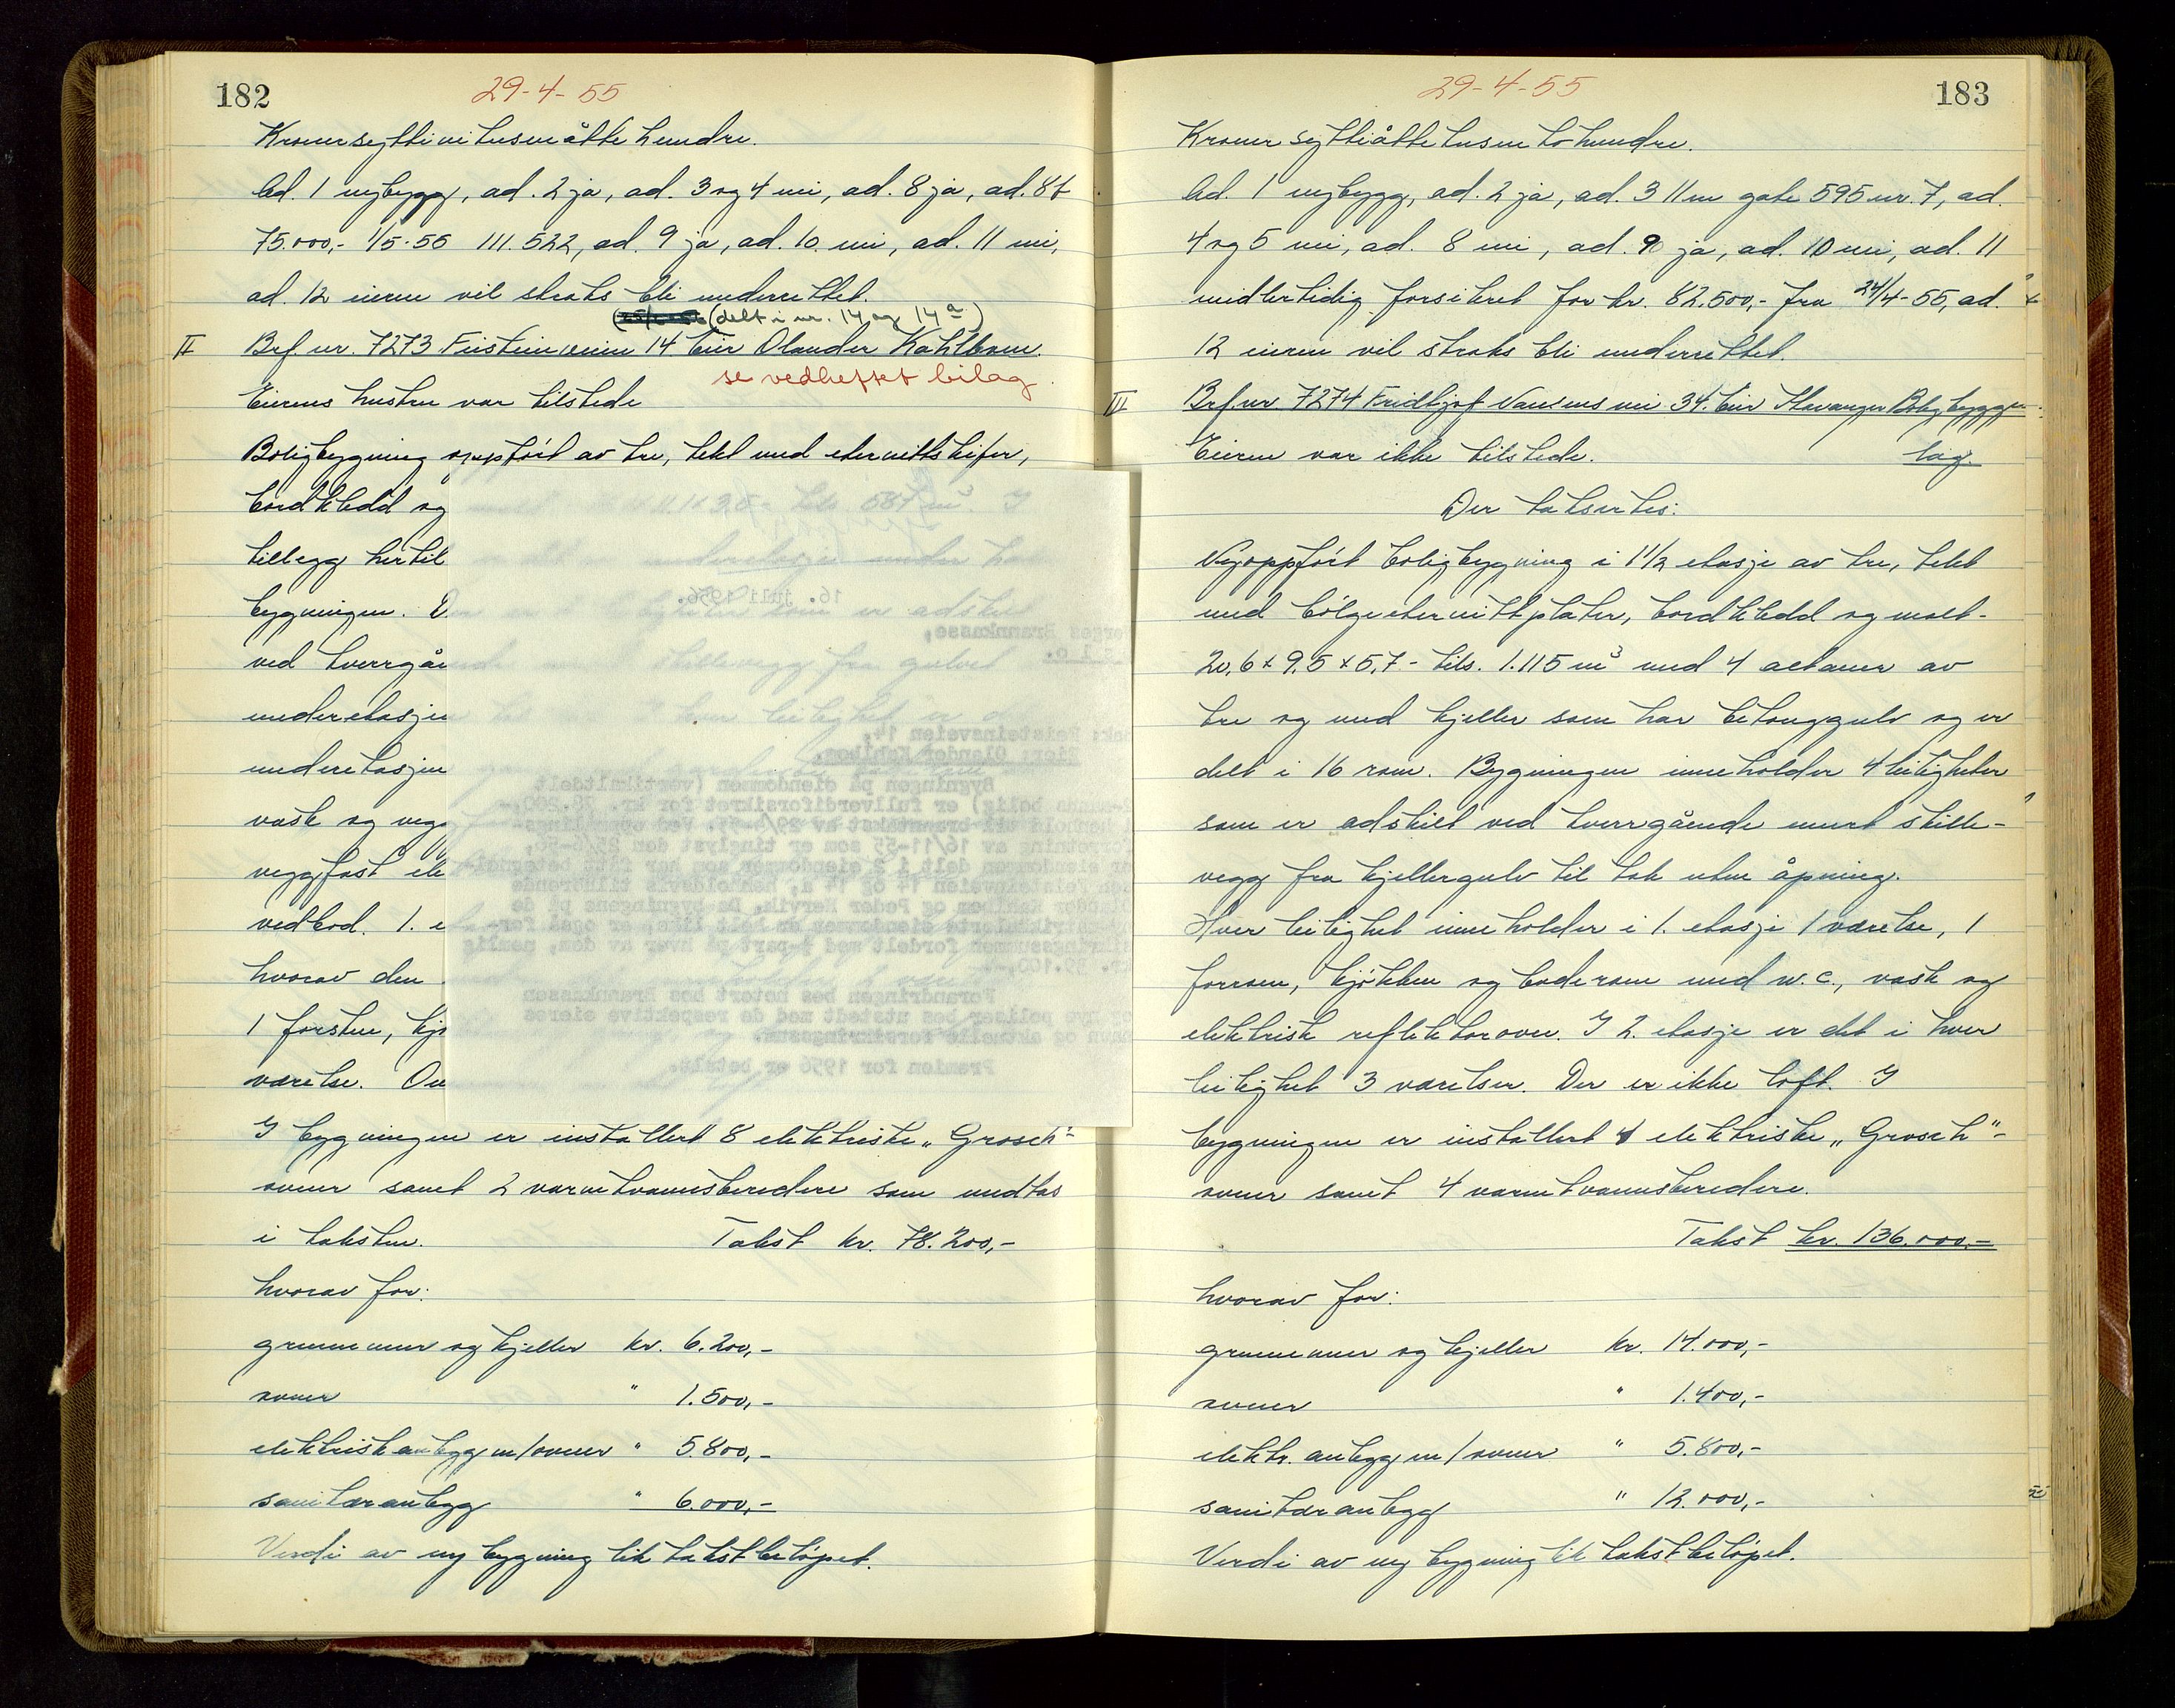 182
29-4-55
Kroner syttinitusenåttehundre.
Ad. 1 nybygg, ad. 2 ja, ad. 3 og 4 nei, ad. 8 ja, ad. 8 f
75.000,- 1/5-55 111.522, ad. 9 ja, ad. 10 nei, ad. 11 nei,
ad. 12 eieren vil straks bli underrettet.
(delt i nr. 14 og 14 a)
II Brf. nr. 7273 Feisteinveien 14 Eier Olander Kahlbom.
se vedheftet bilag.
Eierens hustru var tilstede
Boligbygning oppført av tre, tekt med eternittskifer,
bordkledd og
tillegg hertil
bygningen. D
ved tverrgåe
underetasjen
underetasjen
vask og vegg
veggfast ele
vedbod. 1. e
hvorav den
1 forstue, kjø
værelse. Ov
16. juli 1956.
Norges Brannkasse,
Oslo.
Feisteinveien 14,
Eier: Olander Kahlbom.
Bygningen på eiendommen (vertikaltdelt
2-manns bolig) er fullverdiforsikret for kr. 78.200,-
i henhold til branntakst av 29/4-55. Ved oppmålings-
forretning av 16/11-55 som er tinglyst den
er eiendommen delt i 2 eiendommer som har fått betegnel-
sen Feisteinveien 14 og 14 a, henholdsvis tilhørende
Olander Kahlbom og Peder Hervik. Da bygningens på de
matrikulerte eiendommer en helt like, er også for-
sikringssummen fordelt med ½-part på hver av dem, nemlig
kr. 39.100,-.
Forandringen bes notert hos Brannkassen
og nye poliser bes utstedt med de respektive eieres
navn og aktuelle forsikringssum.
Premien for 1956 er betalt.
I bygningen er installert 8 elektriske „Grosch"-
ovner samt 2 varmtvannsberedere som undtas
i taksten. Takst kr. 78.200,-
hvorav for:
grunnmur og kjeller kr. 6.200,-
ovner " 1.500,-
elektrisk anlegg m/ovner " 5.800,-
sanitæranlegg " 6.000,-
Verdi av ny bygning lik takstbeløpet.
183
29-4-55
Kroner syttiåttetusentohundre.
Ad. 1 nybygg, ad. 2 ja, ad. 3 11 m gate 595 nr. 7, ad.
4 og 5 nei, ad. 8 nei, ad. 9 ja, ad. 10 nei, ad. 11
midlertidig forsikret for kr. 82.500,- fra 24/4-55, ad.
12 eieren vil straks bli underrettet.
III Brf. nr. 7274 Fridtjof Nansens vei 34. Eier Stavanger Boligbygge-
lag.
Eieren var ikke tilstede.
Der taksertes:
Nyoppført boligbygning i 1 1/2 etasje av tre, tekt
med bølgeeternittplater, bordkledd og malt.
20,6 x 9,5 x 5,7 - tils. 1.115 m³ med 4 altaner av
tre og med kjeller som har betonggulv og er
delt i 16 rom. Bygningen inneholder 4 leiligheter
som er adskilt ved tverrgående murt skille-
vegg fra kjellergulv til tak uten åpning.
Hver leilighet inneholder i 1. etasje 1 værelse, 1
forrom, kjøkken og baderom med w.c., vask og
elektrisk reflektorovn. I 2. etasje er det i hver
leilighet 3 værelser. Der er ikke loft. I
bygningen er installert 4 elektriske „Grosch"-
ovner samt 4 varmtvannsberedere.
Takst kr. 136.000,-
hvorav for:
grunnmur og kjeller kr. 14.000,-
ovner " 1.400,-
elektr. anlegg m/ovner " 5.800,-
sanitæranlegg " 12.000,-
Verdi av ny bygning lik takstbeløpet.